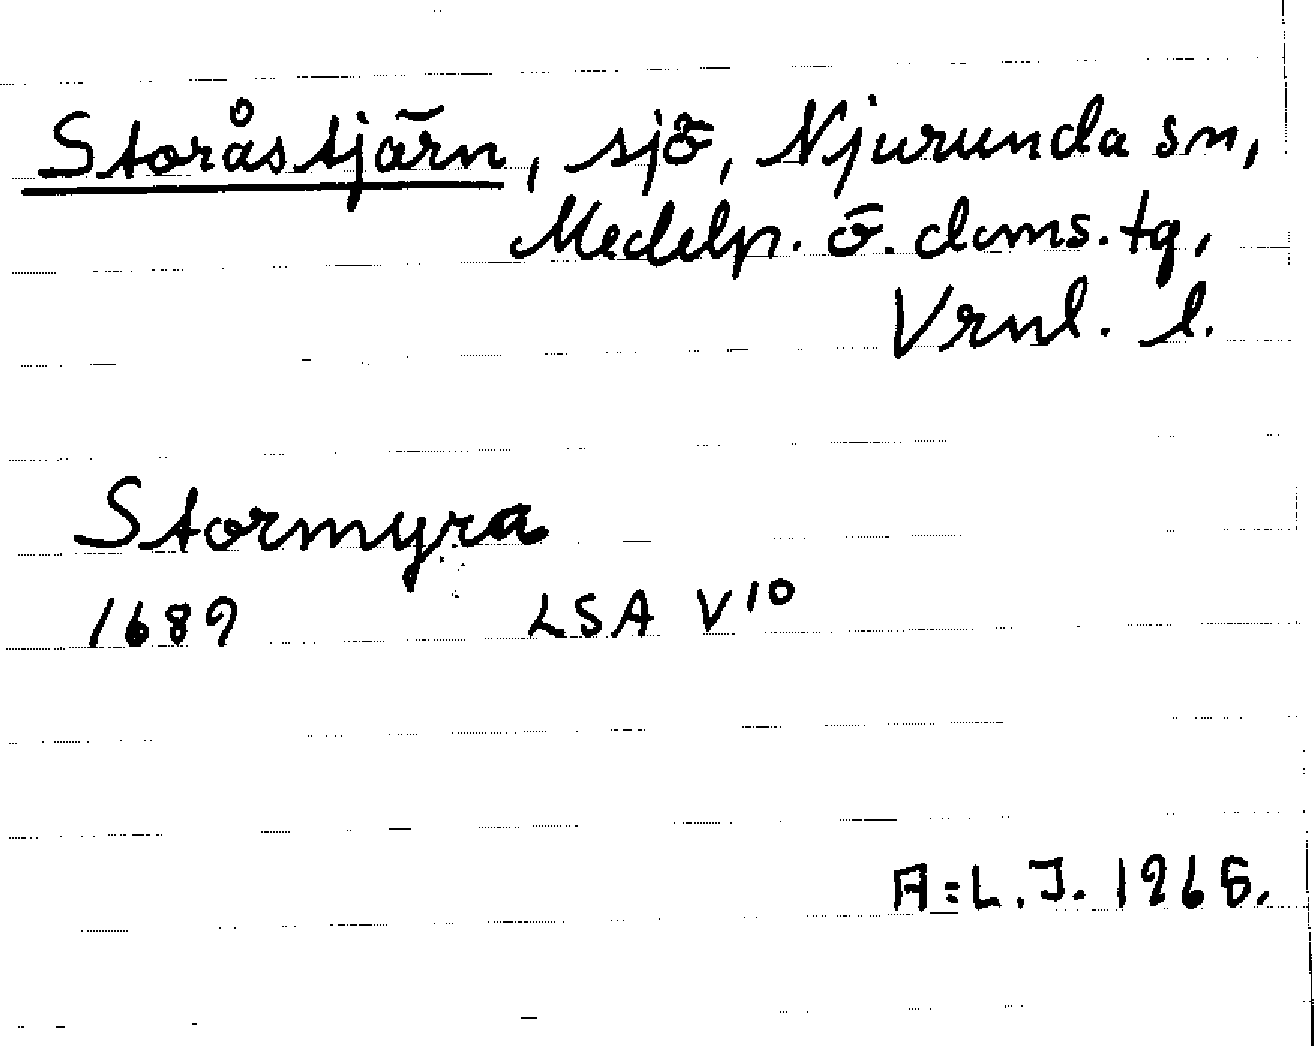 Storåstjärn, sjö, Njurunda sn,
Medelp. ö. doms. tg,
Vrnl. l.
Stormyra
1689 LSA V10
A-L. J. 1965.